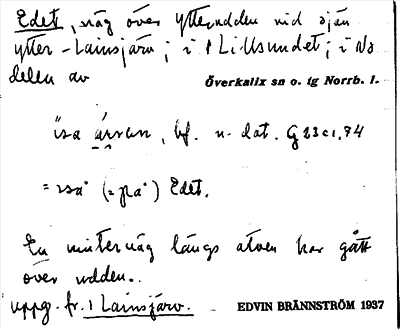 Edet, väg över ytterudden vid sjön
Ytter-Lainsjärv; i 1 Lillsundet; i Nö
delen av
Överkalix sn o. tg Norrb. l.
, bf. n. dat. G 23 c 1, 74
Edet.
En vinterväg längs älven har gått
över udden..
uppg. fr. 1 Lainsjärv.
EDVIN BRÄNNSTRÖM 1937